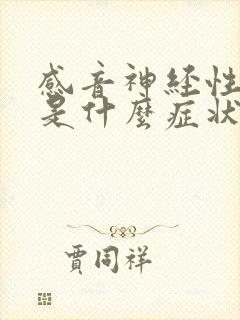 感音神经性
是什麼症状
贾同祥